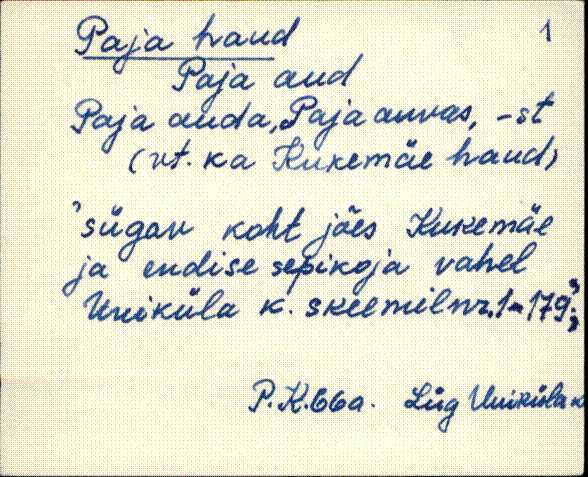 Paja haud 1
Paja aud
Paja auda, Paja auvas, -st
(vt. ka Kukemäe haud)
'sügav koht jões Kukemäe
ja endise sepikoja vahel
Uniküla k. skeemil nr. 1-179;'
P.K.66a. Lüg Uniküla